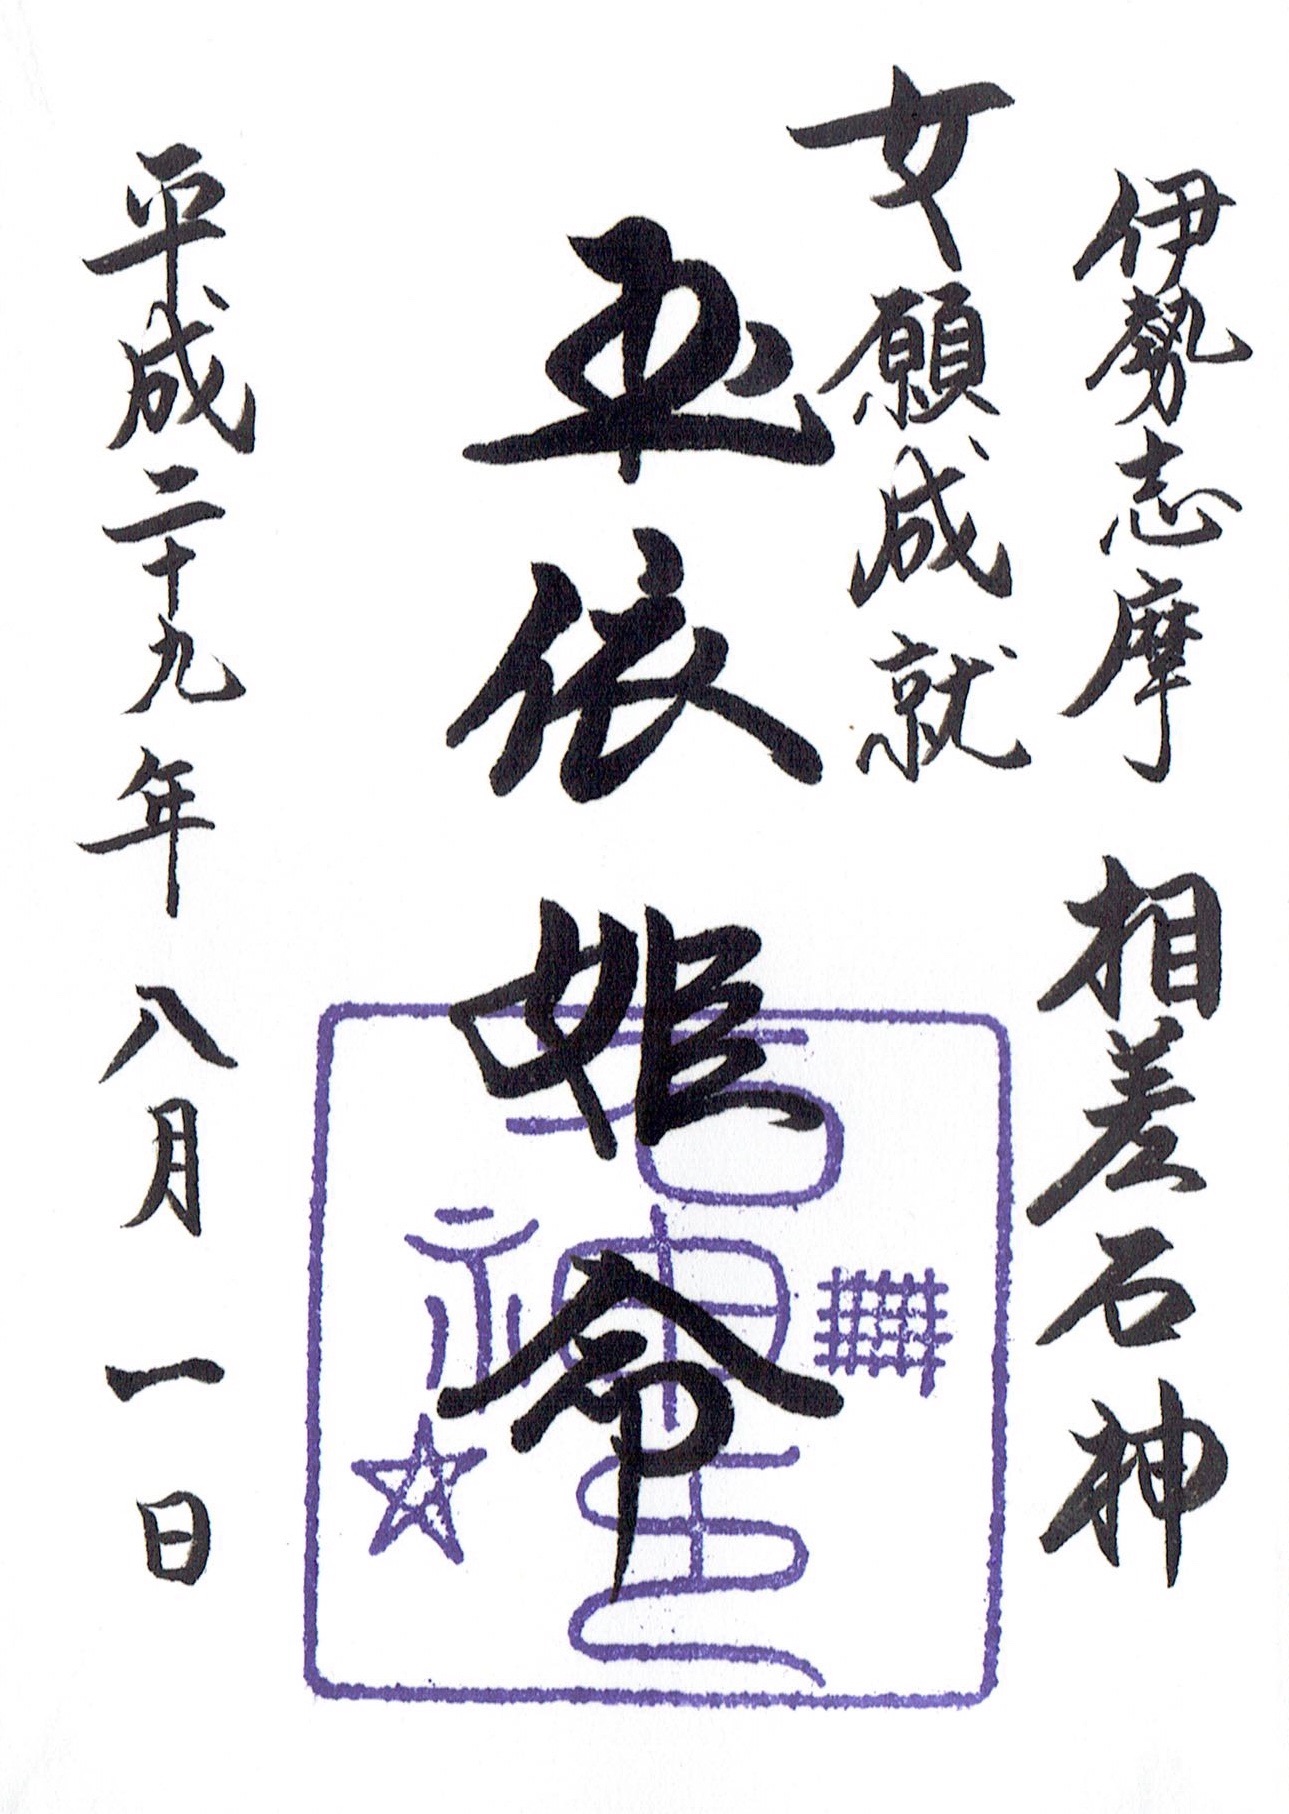 伊勢志摩 相差石神
女願成就
玉依姫命
石神
平成二十九年八月一日